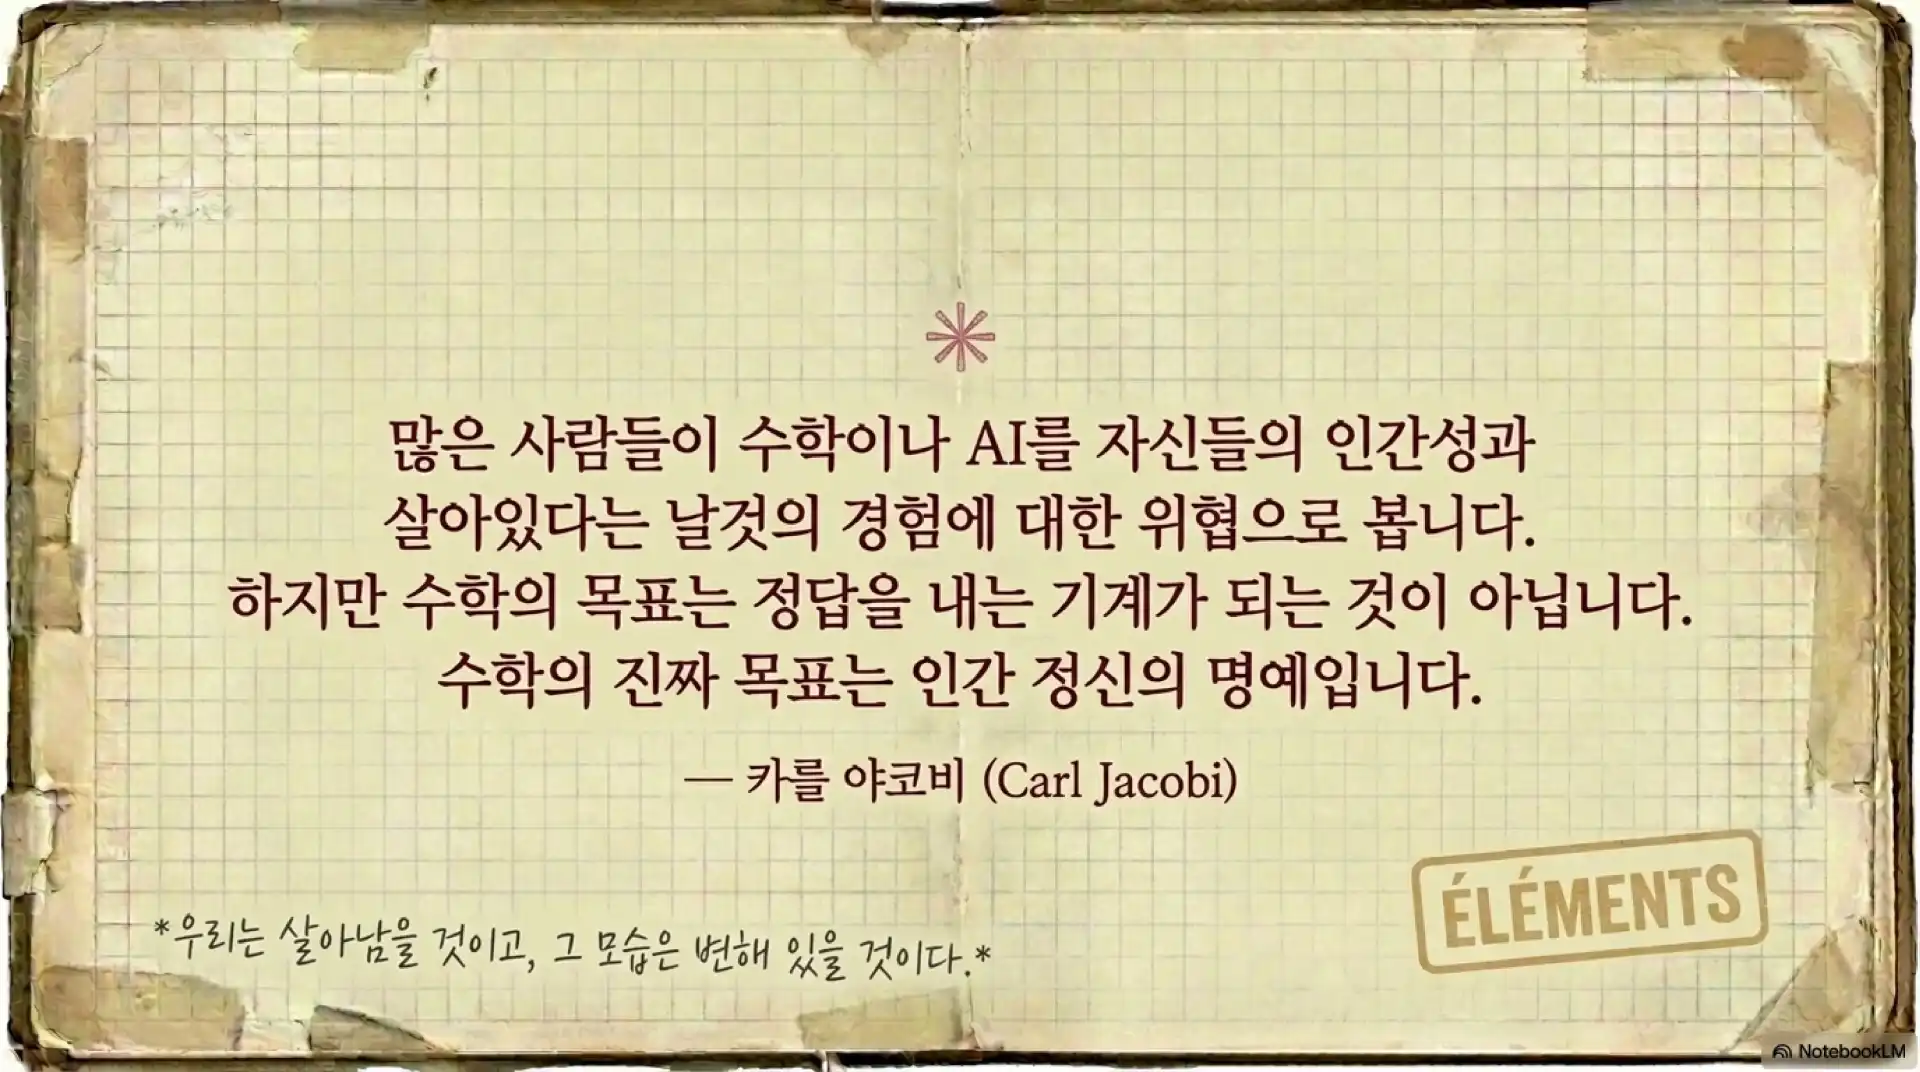 많은 사람들이 수학이나 AI를 자신들의 인간성과
살아있다는 날것의 경험에 대한 위협으로 봅니다.
하지만 수학의 목표는 정답을 내는 기계가 되는 것이 아닙니다.
수학의 진짜 목표는 인간 정신의 명예입니다.
— 카를 야코비 (Carl Jacobi)
ÉLÉMENTS
*우리는 살아남을 것이고, 그 모습은 변해 있을 것이다.*
NotebookLM